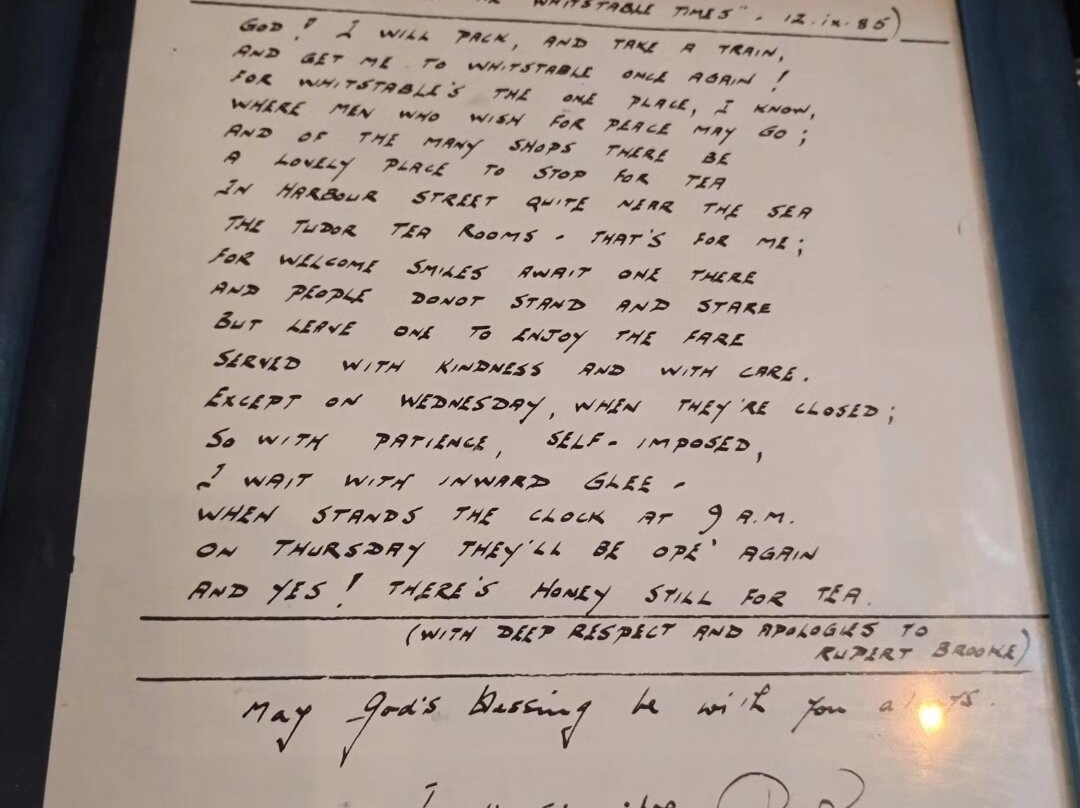 WHITSTABLE TIMES". 12.ix.85)
GOD! I WILL PACK, AND TAKE A TRAIN,
AND GET ME TO WHITSTABLE ONCE AGAIN!
FOR WHITSTABLE'S THE ONE PLACE, I KNOW,
WHERE MEN WHO WISH FOR PEACE MAY GO;
AND OF THE MANY SHOPS THERE BE
A LOVELY PLACE TO STOP FOR TEA
IN HARBOUR STREET QUITE NEAR THE SEA
THE TUDOR TEA ROOMS - THAT'S FOR ME;
FOR WELCOME SMILES AWAIT ONE THERE
AND PEOPLE DONOT STAND AND STARE
BUT LEAVE ONE TO ENJOY THE FARE
SERVED WITH KINDNESS AND WITH CARE.
EXCEPT ON WEDNESDAY, WHEN THEY'RE CLOSED;
SO WITH PATIENCE, SELF-IMPOSED,
I WAIT WITH INWARD GLEE -
WHEN STANDS THE CLOCK AT 9 A.M.
ON THURSDAY THEY'LL BE OPE' AGAIN
AND YES! THERE'S HONEY STILL FOR TEA.
(WITH DEEP RESPECT AND APOLOGIES TO
RUPERT BROOKE)
May God's blessing be with you